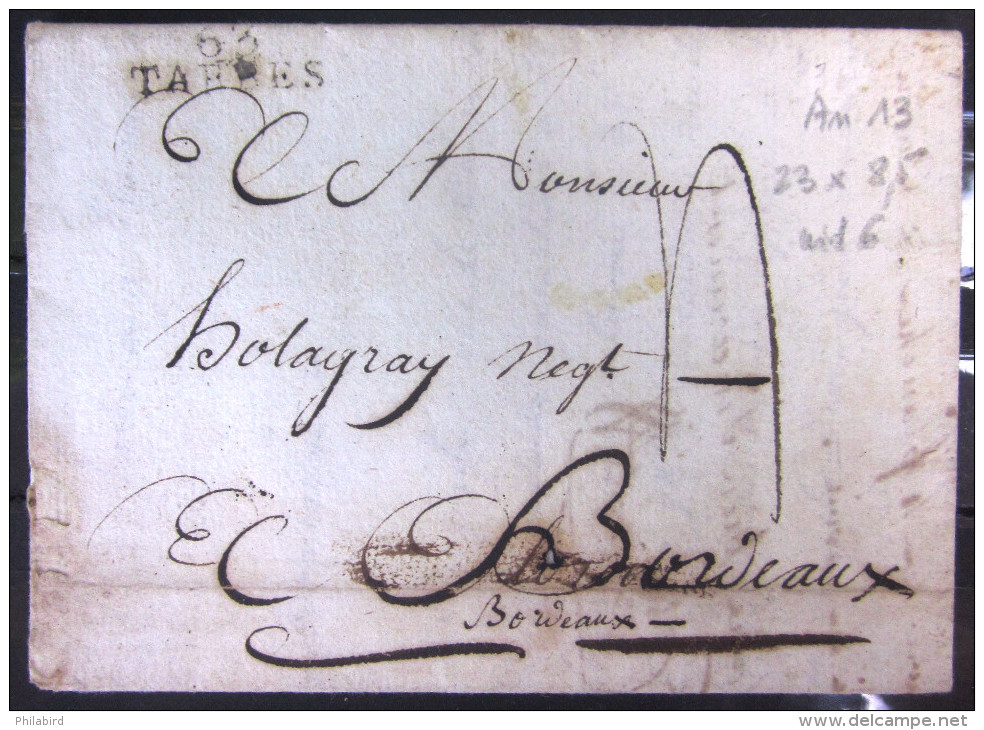 63
TARBES
An 13
23 x 8,5
ind 6
Monsieur
holagray Negt.
A Bordeaux
Bordeaux —
Philabird
http://www.delcampe.net